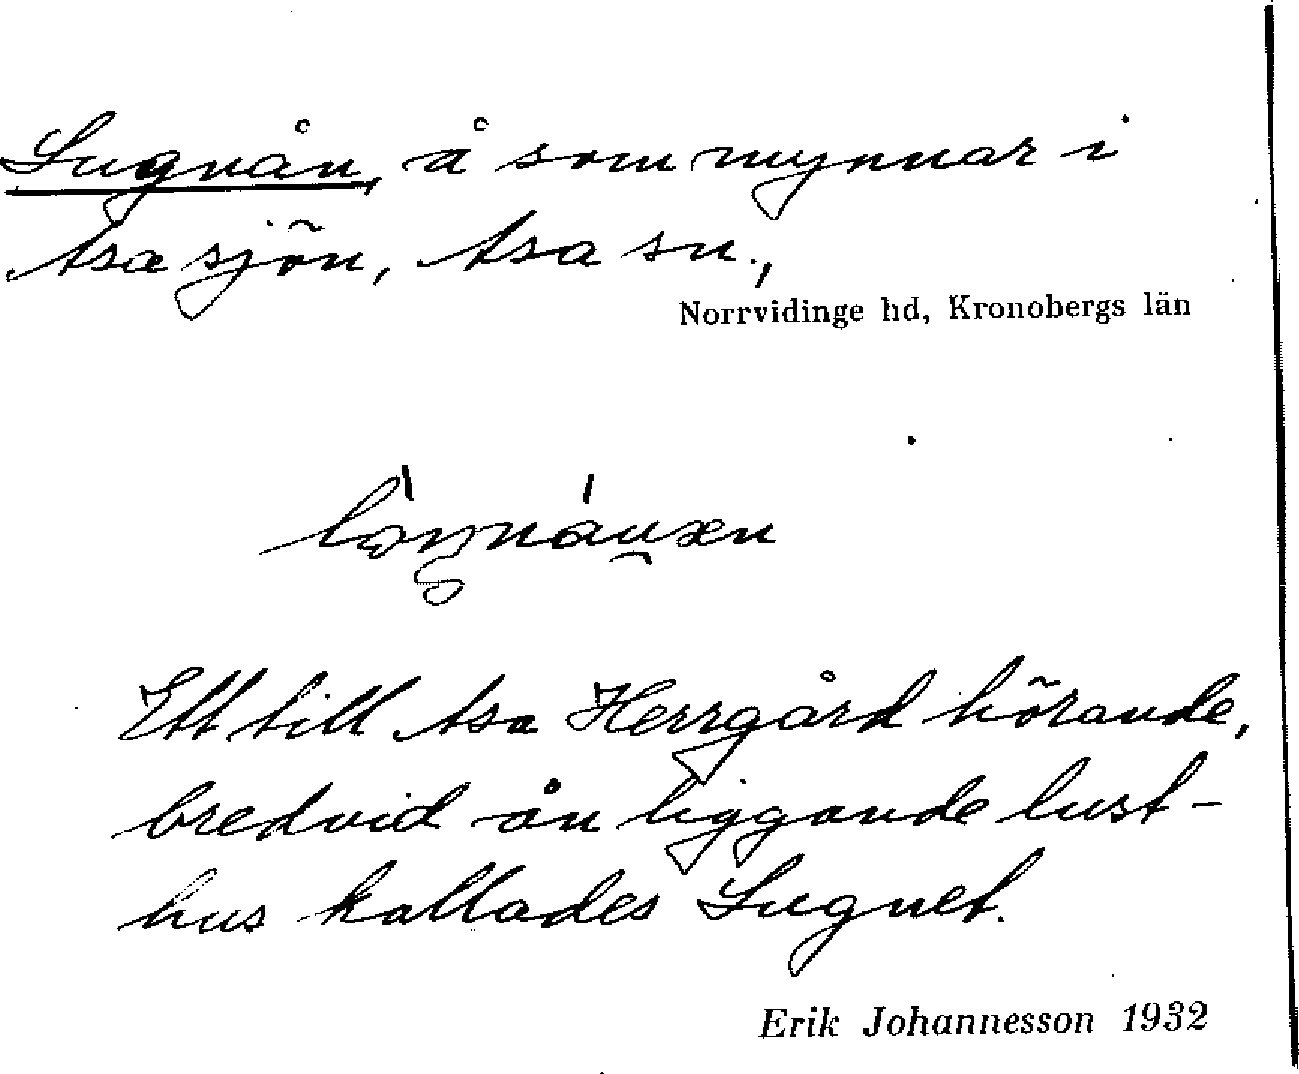 Lugnån, å som mynnar i
Asasjön, Asa sn.,
Norrvidinge hd, Kronobergs län
Ett till Asa Herrgård hörande,
bredvid ån liggande lust-
hus kallades Lugnet.
Erik Johannesson 1932